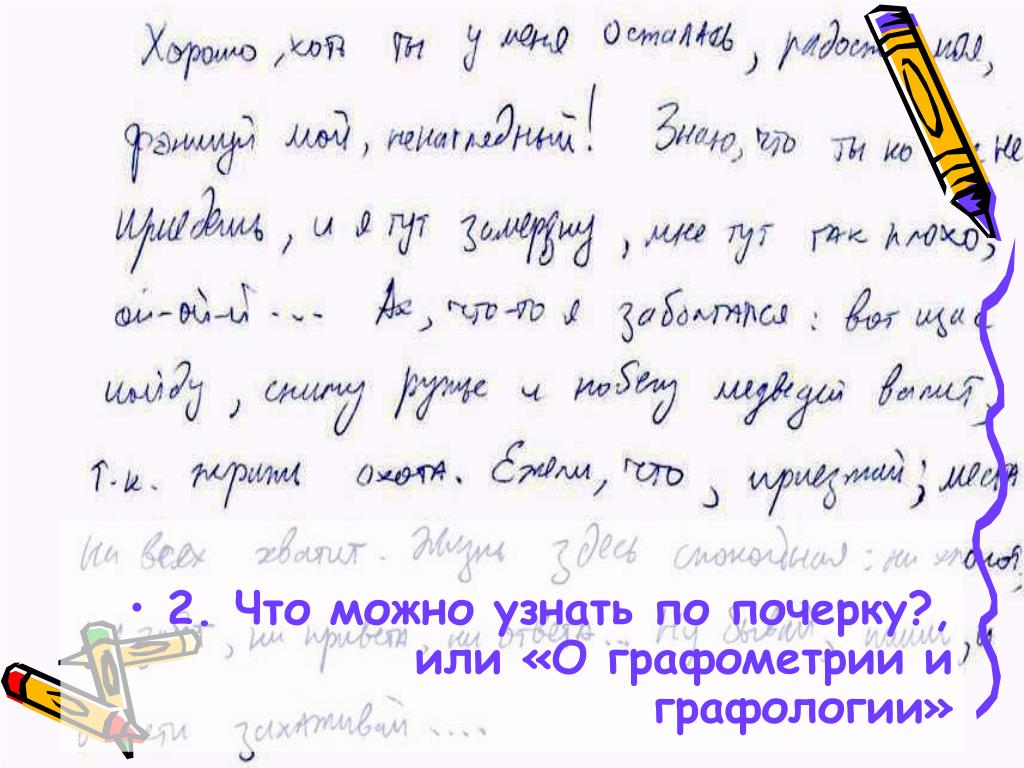 Хорошо, хоть ты у меня осталась, радость моя,
мой, ненаглядный! Знаю, что ты ко не
приедешь, и я тут замерзну, мне тут так плохо,
ой-ой-й... Ах, что-то я заболтался: вот щас
пойду, сниму ружье и побегу медведей валит,
т.к. жрать охота. Ежели, что, приезжай; места
на всех хватит. Жизнь здесь спокойная: ни хлопот,
, ни привета, ни ответа... Ну бывай, пиши, и
захаживай....
• 2. Что можно узнать по почерку?,
или «О графометрии и
графологии»